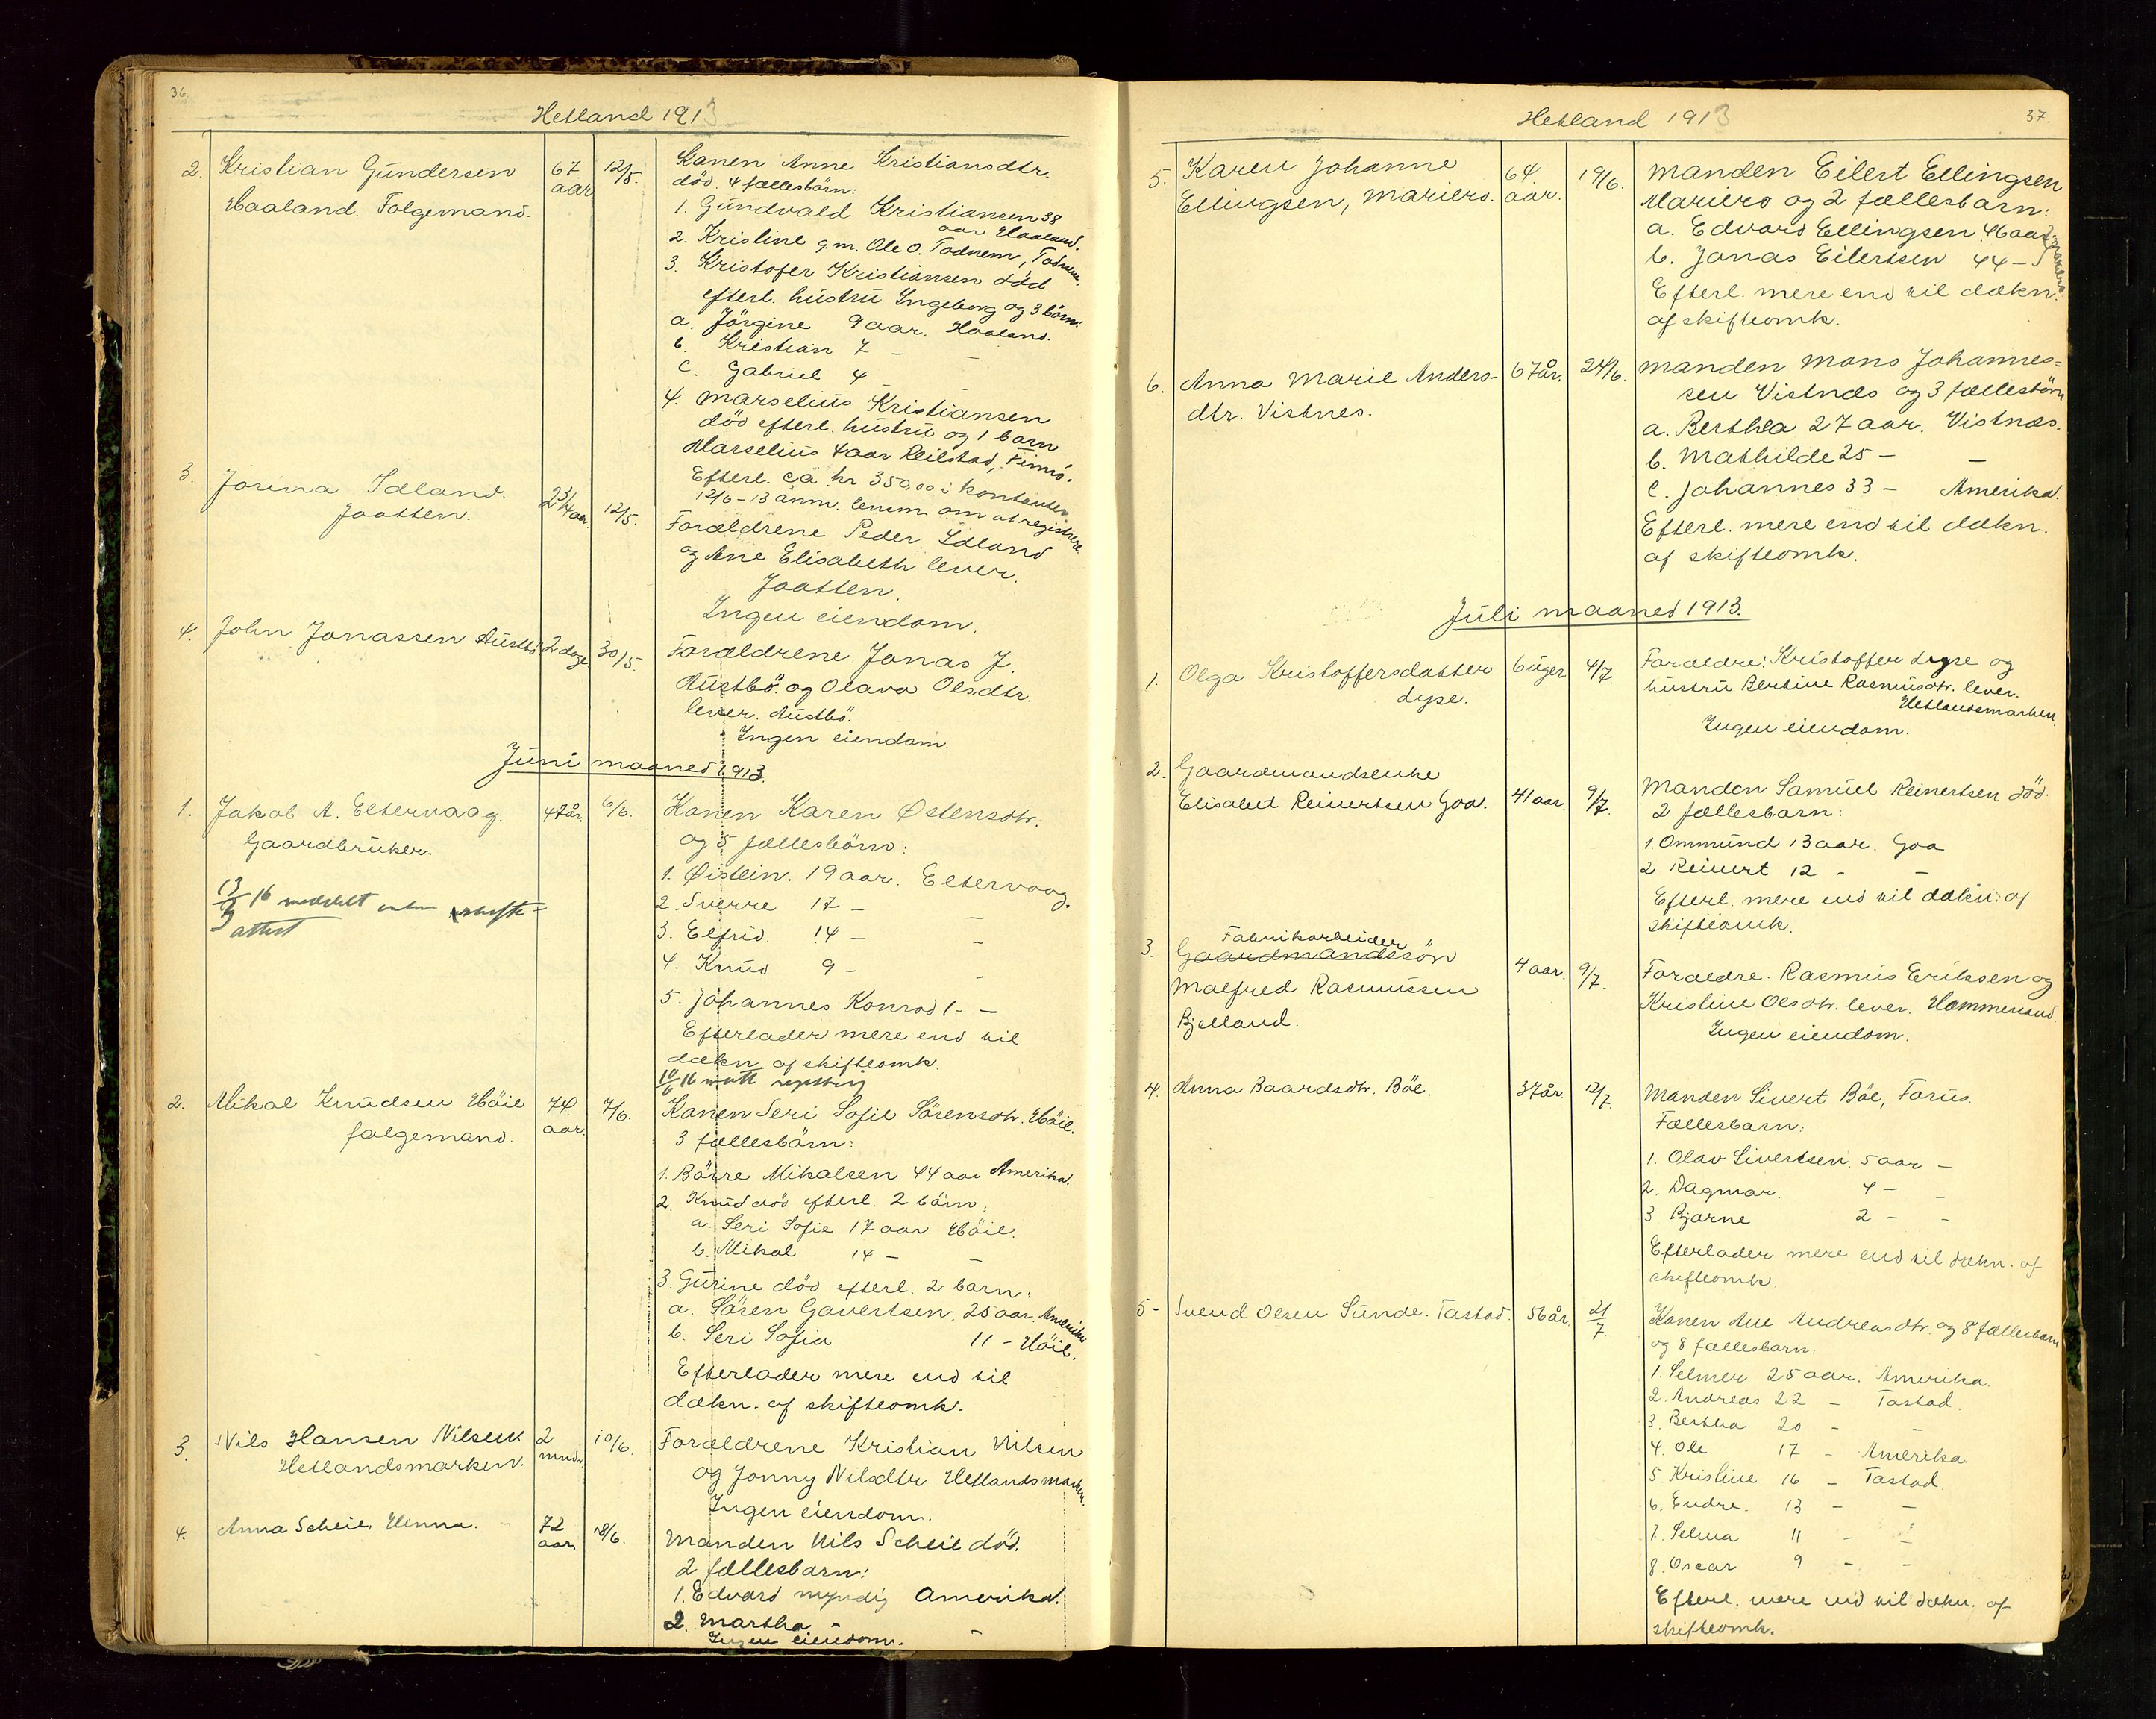 36.
Hetland 1913
2. Kristian Gundersen 67 aar 12/5.
Haaland. Folgemand.
Konen Anne Kristiansdtr.
död. 4 fællesbörn:
1. Gundvald Kristiansen 38
aar Haaland.
2. Kristine g.m. Ole O. Todnem, Todnem.
3. Kristofer Kristiansen död
efterl. hustru Ingeborg og 3 börn:
a. Jörgine 9 aar. Haaland.
b. Kristian 7 - -
c. Gabriel 4 -
4. Marselius Kristiansen
död efterl. hustru og 1 barn
Marselius 4 aar Reilstad, Finnö.
Efterl. ca. kr 350,00 i kontanter
12/6-13 anm. lensm. om at registrere
3. Jorina Idland. 2 3/4 aar. 12/5.
Jaatten.
Forældrene Peder Idland
og Ane Elisabeth lever.
Jaatten.
Ingen eiendom.
4. John Jonassen Austbö 2 dage 30/5.
Forældrene Jonas J.
Austbö. og Olava Olsdtr.
lever. Austbö.
Ingen eiendom.
Juni maaned 1913.
1. Jakob A. Eltervaag. 47 år. 6/6.
Gaardbruker.
13/3 16 meddelt uskifte-
attest
Konen Karen Østensdtr.
og 5 fællesbörn:
1. Øistein. 19 aar. Eltervaag.
2. Sverre 17 -
3. Elfrid. 14 - -
4. Knud 9 - -
5. Johannes Konrad 1 - -
Efterlader mere end til
dækn. af skifteomk.
10/6 16
2. Mikal Knudsen Höie 74 aar. 7/6.
folgemand.
Konen Seri Sofie Sörensdtr. Höie.
3 fællesbörn:
1. Börre Mikalsen 44 aar Amerika.
2. Knud död efterl. 2 börn:
a. Seri Sofie 17 aar Höie.
b. Mikal 14 - -
3. Gurine död efterl. 2 barn:
a. Sören Gavertsen, 25 aar, Amerika
b. Seri Sofia 11 - Höie.
Efterlader mere end til
dækn. af skifteomk.
3. Nils Hansen Nilsen 2 mndr. 10/6.
Hetlandsmarken.
Forældrene Kristian Nilsen
og Jonny Nilsdtr. Hetlandsmarken.
Ingen eiendom.
4. Anna Scheie, Hinna. 72 aar. 18/6.
Manden Nils Scheie död.
2 fællesbarn:
1. Edvard myndig Amerika.
2. Martha - -
Ingen eiendom.
37.
Hetland 1913
5. Karen Johanne 64 aar. 19/6.
Ellingsen, Mariero.
Manden Eilert Ellingsen
Mariero og 2 fællesbarn:
a. Edvard Ellingsen 46 aar
b. Jonas Eilertsen 44 -
Efterl. mere end til dækn.
af skifteomk.
6. Anna Marie Anders- 67 år. 24/6.
dtr. Vistnes.
Manden Mons Johannes=
sen Vistnes og 3 fællesbörn
a. Berthea 27 aar. Vistnæs.
b. Mathilde 25 - -
c. Johannes 33 - Amerika.
Efterl. mere end til dækn.
af skifteomk.
Juli maaned 1913.
1. Olga Kristoffersdatter 6 uger 4/7.
Lyse.
Forældre: Kristoffer Lyse og
hustru Bertine Rasmusdtr. lever.
Hetlandsmarken.
Ingen eiendom.
2. Gaardmandsenke
Elisabet Reinertsen Goa. 41 aar. 9/7.
Manden Samuel Reinertsen död.
2 fællesbarn:
1. Ommund 13 aar. Goa
2 Reinert 12 - -
Efterl. mere end til dækn. af
skifteomk.
Fabrikarbeider
3. Gaardmandssön
Malfred Rasmussen 4 aar. 9/7.
Bjelland.
Forældre. Rasmus Eriksen og
Kristine Olsdtr. lever. Hommersand
Ingen eiendom.
4. Anna Baardsdtr. Böe. 37 år. 12/7.
Manden Sivert Böe, Forus.
Fællesbarn:
1. Olav Sivertsen. 5 aar -
2. Dagmar. 4 - -
3 Bjarne 2 - -
Efterlader mere end til dækn. af
skifteomk.
5- Svend Olsen Sunde. Tastad. 56 år. 21/7.
Konen Ane Andreasdtr. og 8 fællesbarn
og 8 fællesbarn:
1. Selmer 25 aar. Amerika.
2. Andreas 22 - Tastad.
3. Bertha 20 - -
4. Ole 17 - Amerika.
5. Kristine 16 - Tastad.
6. Endre. 13 - -
7. Selma 11 - -
8. Oscar 9 - -
Efterl. mere end til dækn. af
skifteomk.